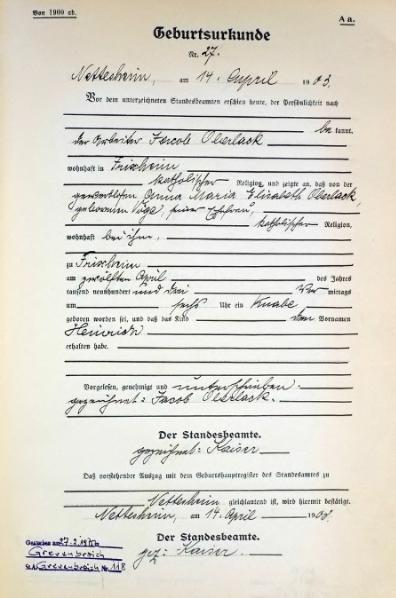 Von 1900 ab.
A a.
Geburtsurkunde
Nr. 27.
Nettesheim, am 14 April 1903.
Vor dem unterzeichneten Standesbeamten erschien heute, der Persönlichkeit nach
be kannt,
der Arbeiter Jacob Oberlack
wohnhaft in Frixheim
katholischer Religion, und zeigte an, daß von der
gewerblosen Anna Maria Elisabeth Oberlack,
geborenen seiner Ehefrau,
katholischer Religion,
wohnhaft bei ihm,
zu Frixheim
am zwölften April des Jahres
tausend neunhundert und drei Vor mittags
um sechs Uhr ein Knabe
geboren worden sei, und daß das Kind den Vornamen
Heinrich
erhalten habe.
Vorgelesen, genehmigt und unterschrieben.
gezeichnet: Jacob Oberlack.
Der Standesbeamte.
gezeichnet: Kaiser
Daß vorstehender Auszug mit dem Geburtshauptregister des Standesamtes zu
Nettesheim gleichlautend ist, wird hiermit bestätigt.
Nettesheim, am 14. April 1903.
Der Standesbeamte.
gez: Kaiser.
Grevenbroich
Grevenbroich Nr. 118